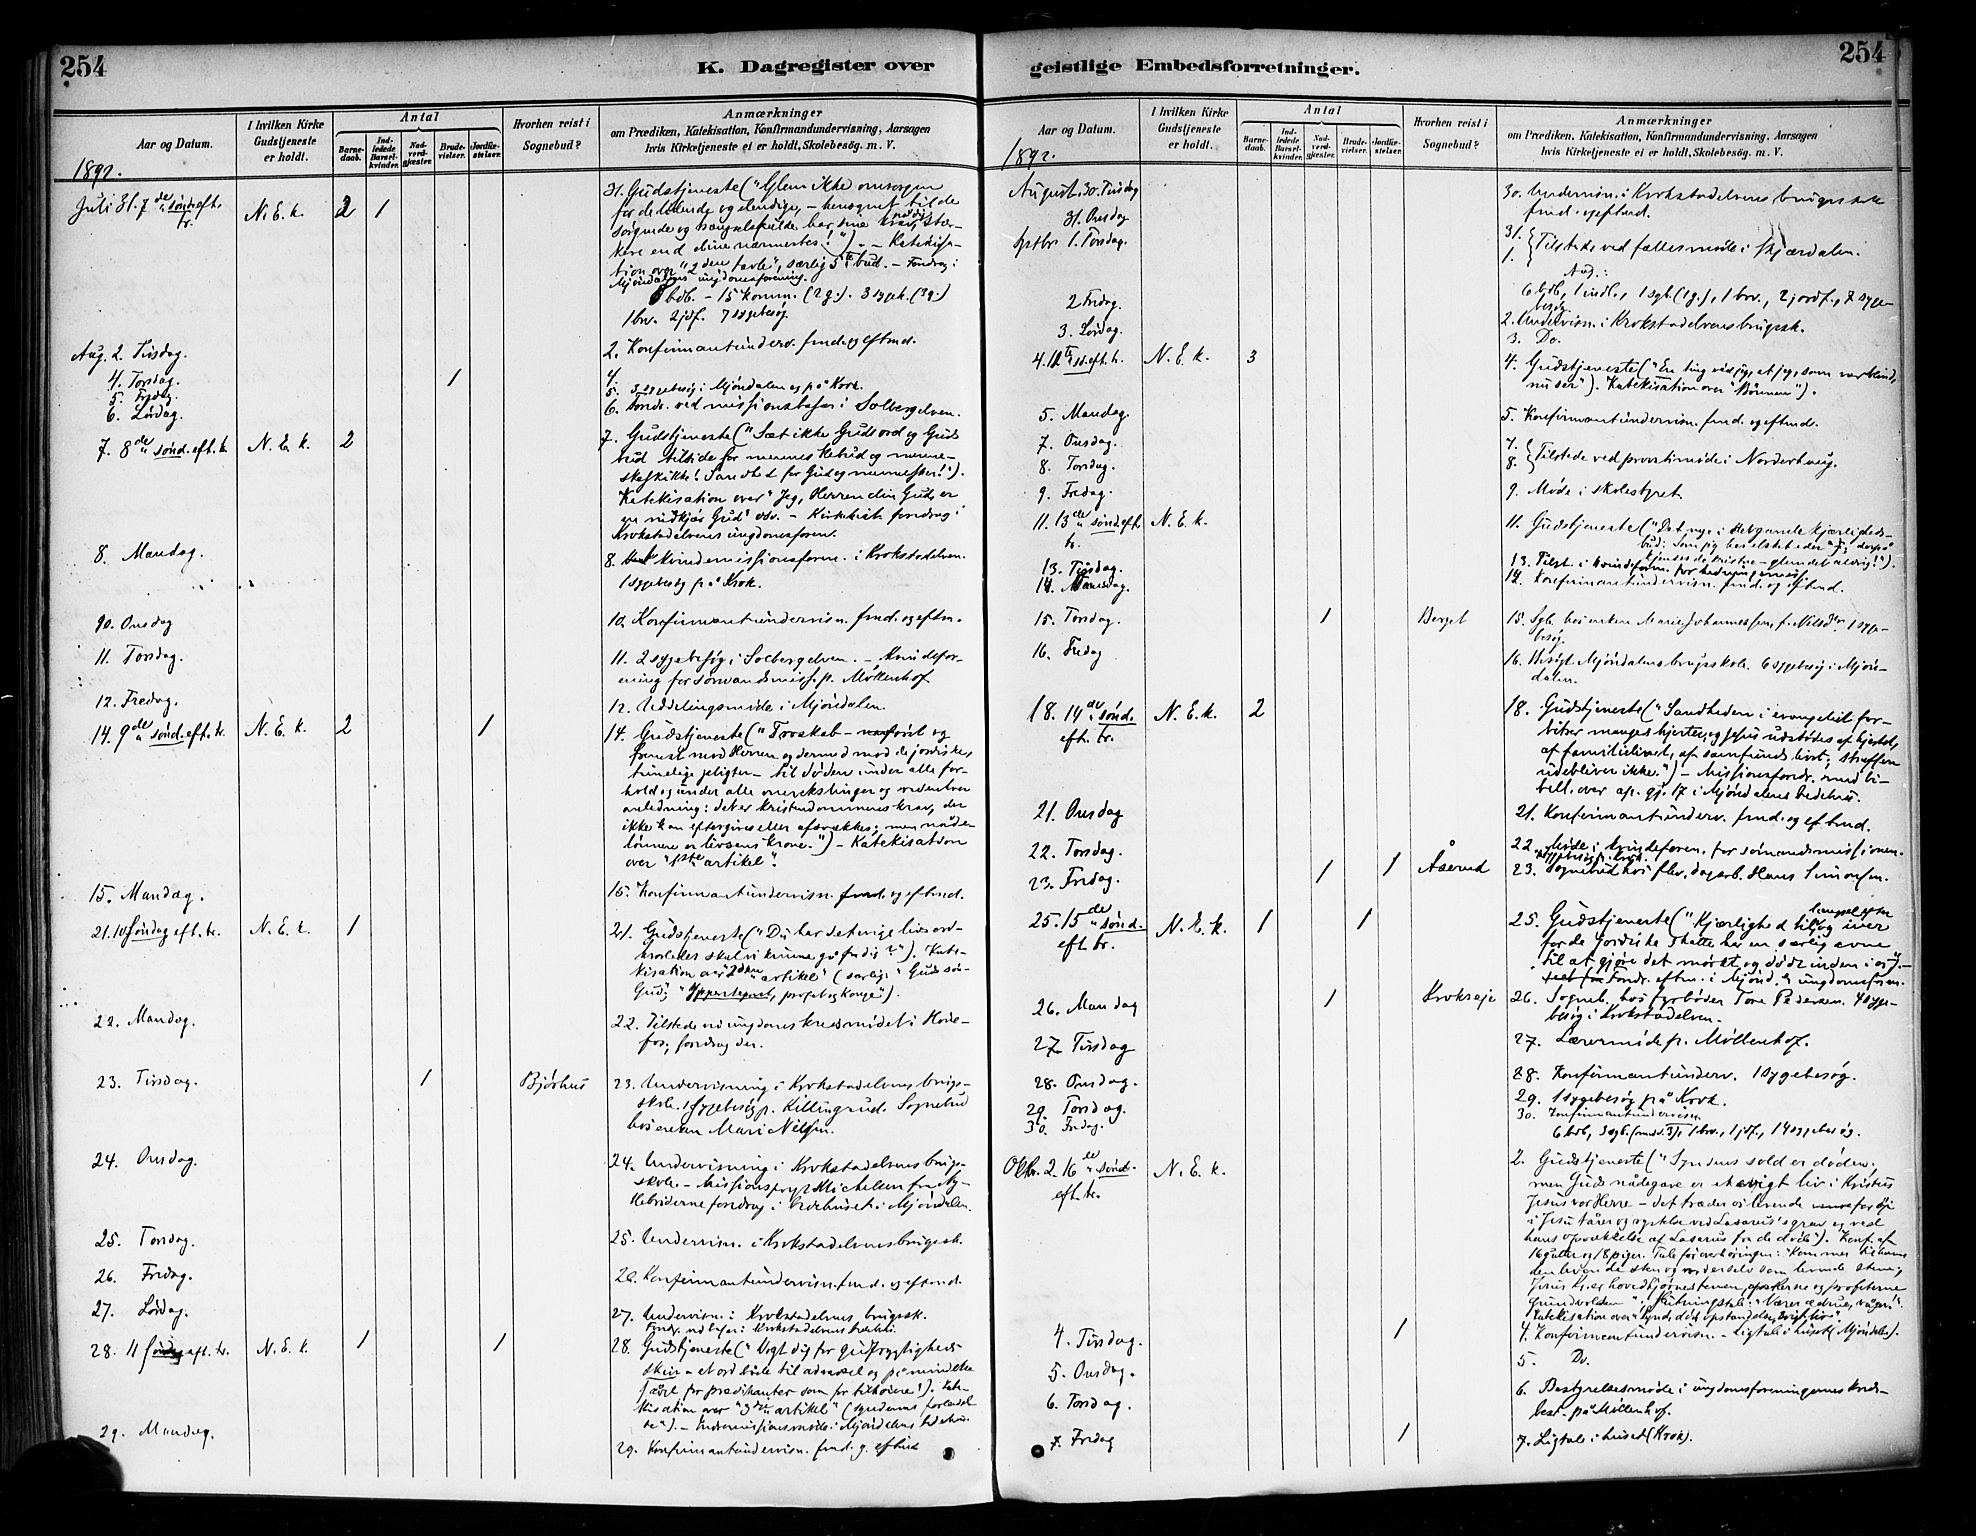 254
K. Dagregister over
Aar og Datum.
I hvilken Kirke
Gudstjeneste
er holdt.
Antal
Barne-
daab.
Ind-
ledede
Barsel-
kvinder.
Nad-
verd-
gjester.
Brude-
vielser.
Jordfæ-
stelser.
Hvorhen reist i
Sognebud?
Anmærkninger
om Prædiken, Katekisation, Konfirmandundervisning, Aarsagen
hvis Kirketjeneste ei er holdt, Skolebesög. m. V.
1892.
Juli 31. 7de sønd. eft. tr. N. E. k. 2 1
31. Gudstjeneste ("Glem ikke omsorgen
for de lidende og elendige, –
– Katekisa-
tion over "2den tavle", særlig 5te bud. – Foredrag i
Mjøndalens ungdomsforening.
bdb. – 15 komm. (2 g.). 3 sygek. (3 g.)
1 brv. 2 jdf. 7 sygebesøg.
Aug. 2. Tirsdag.
2. Konfirmantunderv. fmd. og eftmd.
4. Torsdag. 1
4.
5. Fredag.
5. 3 sygebesøg i Mjøndalen og på Krok.
6. Lørdag.
6. Foredr. ved missionsbasar i Solbergelven.
7. 8de sønd. eft. tr. N. E. k. 2
7. Gudstjeneste ("Sæt ikke Guds ord og Guds
bud tilside for
Katekisation over "Jeg, Herren din Gud, er
en nidkjær Gud" osv. – foredrag i
Krokstadelvens ungdomsforen.
8. Mandag.
8. Kvindemissionsforen. i Krokstadelven.
1 sygebesøg på Krok.
10. Onsdag
10. Konfirmantundervisn. fmd. og eftm.
11. Torsdag.
11. 2 sygebesøg i Solbergelven. – Kvindefor-
ening for sømandsmiss. p. Møllenhof.
12. Fredag.
12. Uddelingsmøde i Mjøndalen.
14. 9de sønd. eft. tr. N. E. k. 2 1
14. Gudstjeneste ("Troskab – først og
fremst mod Herren og dermed mod de jordiske,
timelige pligter – til døden under alle for-
hold og under alle omvekslinger og
anledning: det er kristendommens krav, der
ikke kan eftergives eller afsvækkes; men nåde-
lønnen er livsens krone.") – Katekisation
over "1ste artikel".
15. Mandag.
15. Konfirmantundervisn. fmd. og eftmd.
21. 10 søndag eft. tr. N. E. k. 1
21. Gudstjeneste ("Du har det evige livs ord –
hvorledes skulde vi kunne gå fra dig?"). Kate-
kisation over "2den artikel" (særlig: "Guds søn –
Gud", "Ypperstepræst, profet og konge").
22. Mandag.
22. Tilstede ved ungdomskredsmødet i Høne-
fos; foredrag der.
23. Tirsdag. 1 Bjørhus
23. Undervisning i Krokstadelvens brugs-
skole. 1 sygebesøg p. Killingrud. Sognebud
hos enken Mari Nilsen.
24. Onsdag.
24. Undervisning i Krokstadelvens brugs-
skole. – Missionspræst Michelsen fra Ny-
Hebriderne foredrag i bedehuset i Mjøndalen.
25. Torsdag.
25. Undervisn. i Krokstadelvens brugssk.
26. Fredag.
26. Konfirmantundervisn. fmd. og eftmd.
27. Lørdag.
27. Undervisn. i Krokstadelvens brugssk.
28. 11 søndag eft. tr. N. E. k. 1 1
28. Gudstjeneste ("Vogt dig for gudfrygtigheds-
skin – et ord både til advarsel og påmindelse
såvel for prædikanter som for tilhørere!"). Kate-
kisation over "3die artikel" (syndernes forladel-
se"). – Indremissionsmøde i Mjøndalens bedehus.
29. Mandag.
29. Konfirmantundervisn. fmd. og eftmd.
254
geistlige Embedsforretninger.
Aar og Datum.
I hvilken Kirke
Gudstjeneste
er holdt.
Antal
Barne-
daab.
Ind-
ledede
Barsel-
kvinder.
Nad-
verd-
gjester.
Brude-
vielser.
Jordfæ-
stelser.
Hvorhen reist i
Sognebud?
Anmærkninger
om Prædiken, Katekisation, Konfirmandundervisning, Aarsagen
hvis Kirketjeneste ei er holdt, Skolebesög. m. V.
1892.
August 30. Tirsdag
30. Undervisn. i Krokstadelvens brugsskole
fmd. og eftmd.
31. Onsdag
Septbr. 1. Torsdag.
31.
1. Tilstede ved fællesmøde i Skjærdalen.
Aug.:
6 bdb, 1 indl., 1 sgb. (1 g.), 1 brv., 2 jordf., 7 syge-
besøg.
2. Fredag.
2. Undervisn. i Krokstadelvens brugssk.
3. Lørdag.
3. Do.
4. 12te s. eft. tr. N. E. k. 3
4. Gudstjeneste ("En ting ved jeg, at jeg, som var blind,
nu ser"). Katekisation over "Bønnen").
5. Mandag.
5. Konfirmantundervisn. fmd. og eftmd.
7. Onsdag.
8. Torsdag.
7.
8. Tilstede ved provstimøde i Norderhaug.
9. Fredag.
9. Møde i skolestyret.
11. 13de sønd. eft. tr. N. E. k.
11. Gudstjeneste ("Det nye i
bud: Som jeg har elsket eder
kjendes de kristne – glem det aldrig!").
13. Tirsdag.
13. Tilst. i kvindeforen. for hedningemiss.
14. Onsdag.
14. Konfirmantundervisn. fmd. og eftmd.
15. Torsdag. 1 Berget
15. Sgb. hos enken Marie Johannessen, f. Nilsdtr. 1 syge-
besøg.
16. Fredag
16. Besøgt Mjøndalens brugsskole. 6 sygebesøg i Mjøn-
dalen.
18. 14de sønd. eft. tr. N. E. k. 2
18. Gudstjeneste ("Sandheden i evangeliet for-
bitrer manges hjerter, og Jesus udstødes af hjertet,
af familielivet, af samfundslivet; straffen
udebliver ikke.") – Missionsforedr. med bi-
bell. over ap. gj. 17 i Mjøndalens bedehus.
21. Onsdag
21. Konfirmantunderv. fmd. og eftmd.
22. Torsdag.
22. Møde i kvindeforen. for sømandsmissionen.
23. Fredag. 1 1 Åserud
23. Sognebud hos dagarb. Hans Simonsen.
25. 15de sønd. eft. tr. N. E. k. 1 1
25. Gudstjeneste ("Kjærlighed til og iver
for de jordiske skatte har en særlig evne
til at gjøre det mørkt og dødt inden i os"). –
Foredr. eftm. i Mjønd. ungdomsforen.
26. Mandag 1 Krokseje
26. Sogneb. hos fyrbøder Tore Pedersen. 4 syge-
besøg i Krokstadelven.
27. Tirsdag
27. Lærermøde p. Møllenhof.
28. Onsdag.
28. Konfirmantunderv. 1 sygebesøg.
29. Torsdag.
29. 1 sygebesøg på Krok.
30. Fredag.
30. Konfirmantundervisn.
6 bdb, 3 sgb. (med 3), 1 brv., 1 jdf., 14 sygebesøg.
Oktbr. 2. 16de sønd. eft. tr. N. E. k.
2. Gudstjeneste ("Syndens sold er døden,
men Guds nådegave er et evigt liv i Kristus
Jesus vor Herre – det træder os levende for øje
i Jesu tårer og ved Lasarus's grav og ved
hans opvækkelse af Lasarus fra de døde"). Konf. af
16 gutter og 18 piger. Tale før overhøringen: "Kom
den levende sten og som levende stene,
Jesus Kr. er hovedhjørnestenen, apostlerne og profeterne
grundvolden"; Slutningstale: "Vær ædrue, våger!".
4. Tirsdag. 1
4. Konfirmantundervisn. – Ligtale i huset (Mjøndalen).
5. Onsdag.
5. Do.
6. Torsdag.
6. Bestyrelsesmøde i ungdomsforeningernes kreds-
best. på Møllenhof.
7. Fredag 1
7. Ligtale i huset (Krok).